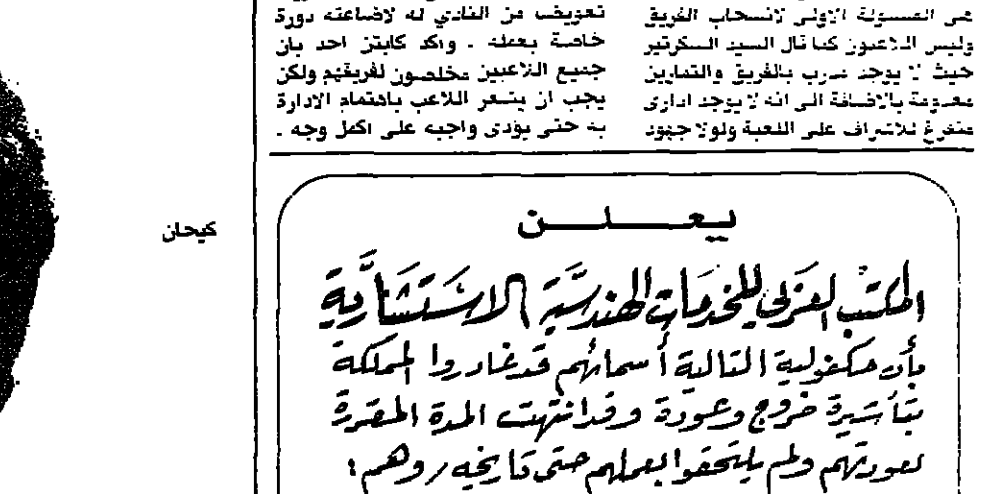 هى المسؤلة الاولى لانسحاب الفريق
وليس اللاعبون كما قال السيد السكرتير
حيث لا يوجد مدرب بالفريق والتمارين
معدومة بالاضافة الى انه لا يوجد ادارى
متفرغ للاشراف على اللعبة ولولا جهود
تعويض من النادي له لاضاعته دورة
خاصة بعمله . واكد كابتن احد بان
جميع اللاعبين مخلصون لفريقهم ولكن
يجب ان يشعر اللاعب باهتمام الادارة
به حتى يؤدى واجبه على اكمل وجه .
كيحان
يعلن
المكتب العربي للخدمات الهندسية الاستشارية
بأن مكفوليه التالية أسمائهم قد غادروا المملكة
بتأشيرة خروج وعودة وقد انتهت المدة المقررة
لعودتهم ولم يلتحقوا بعملهم حتى تاريخه / وهم :